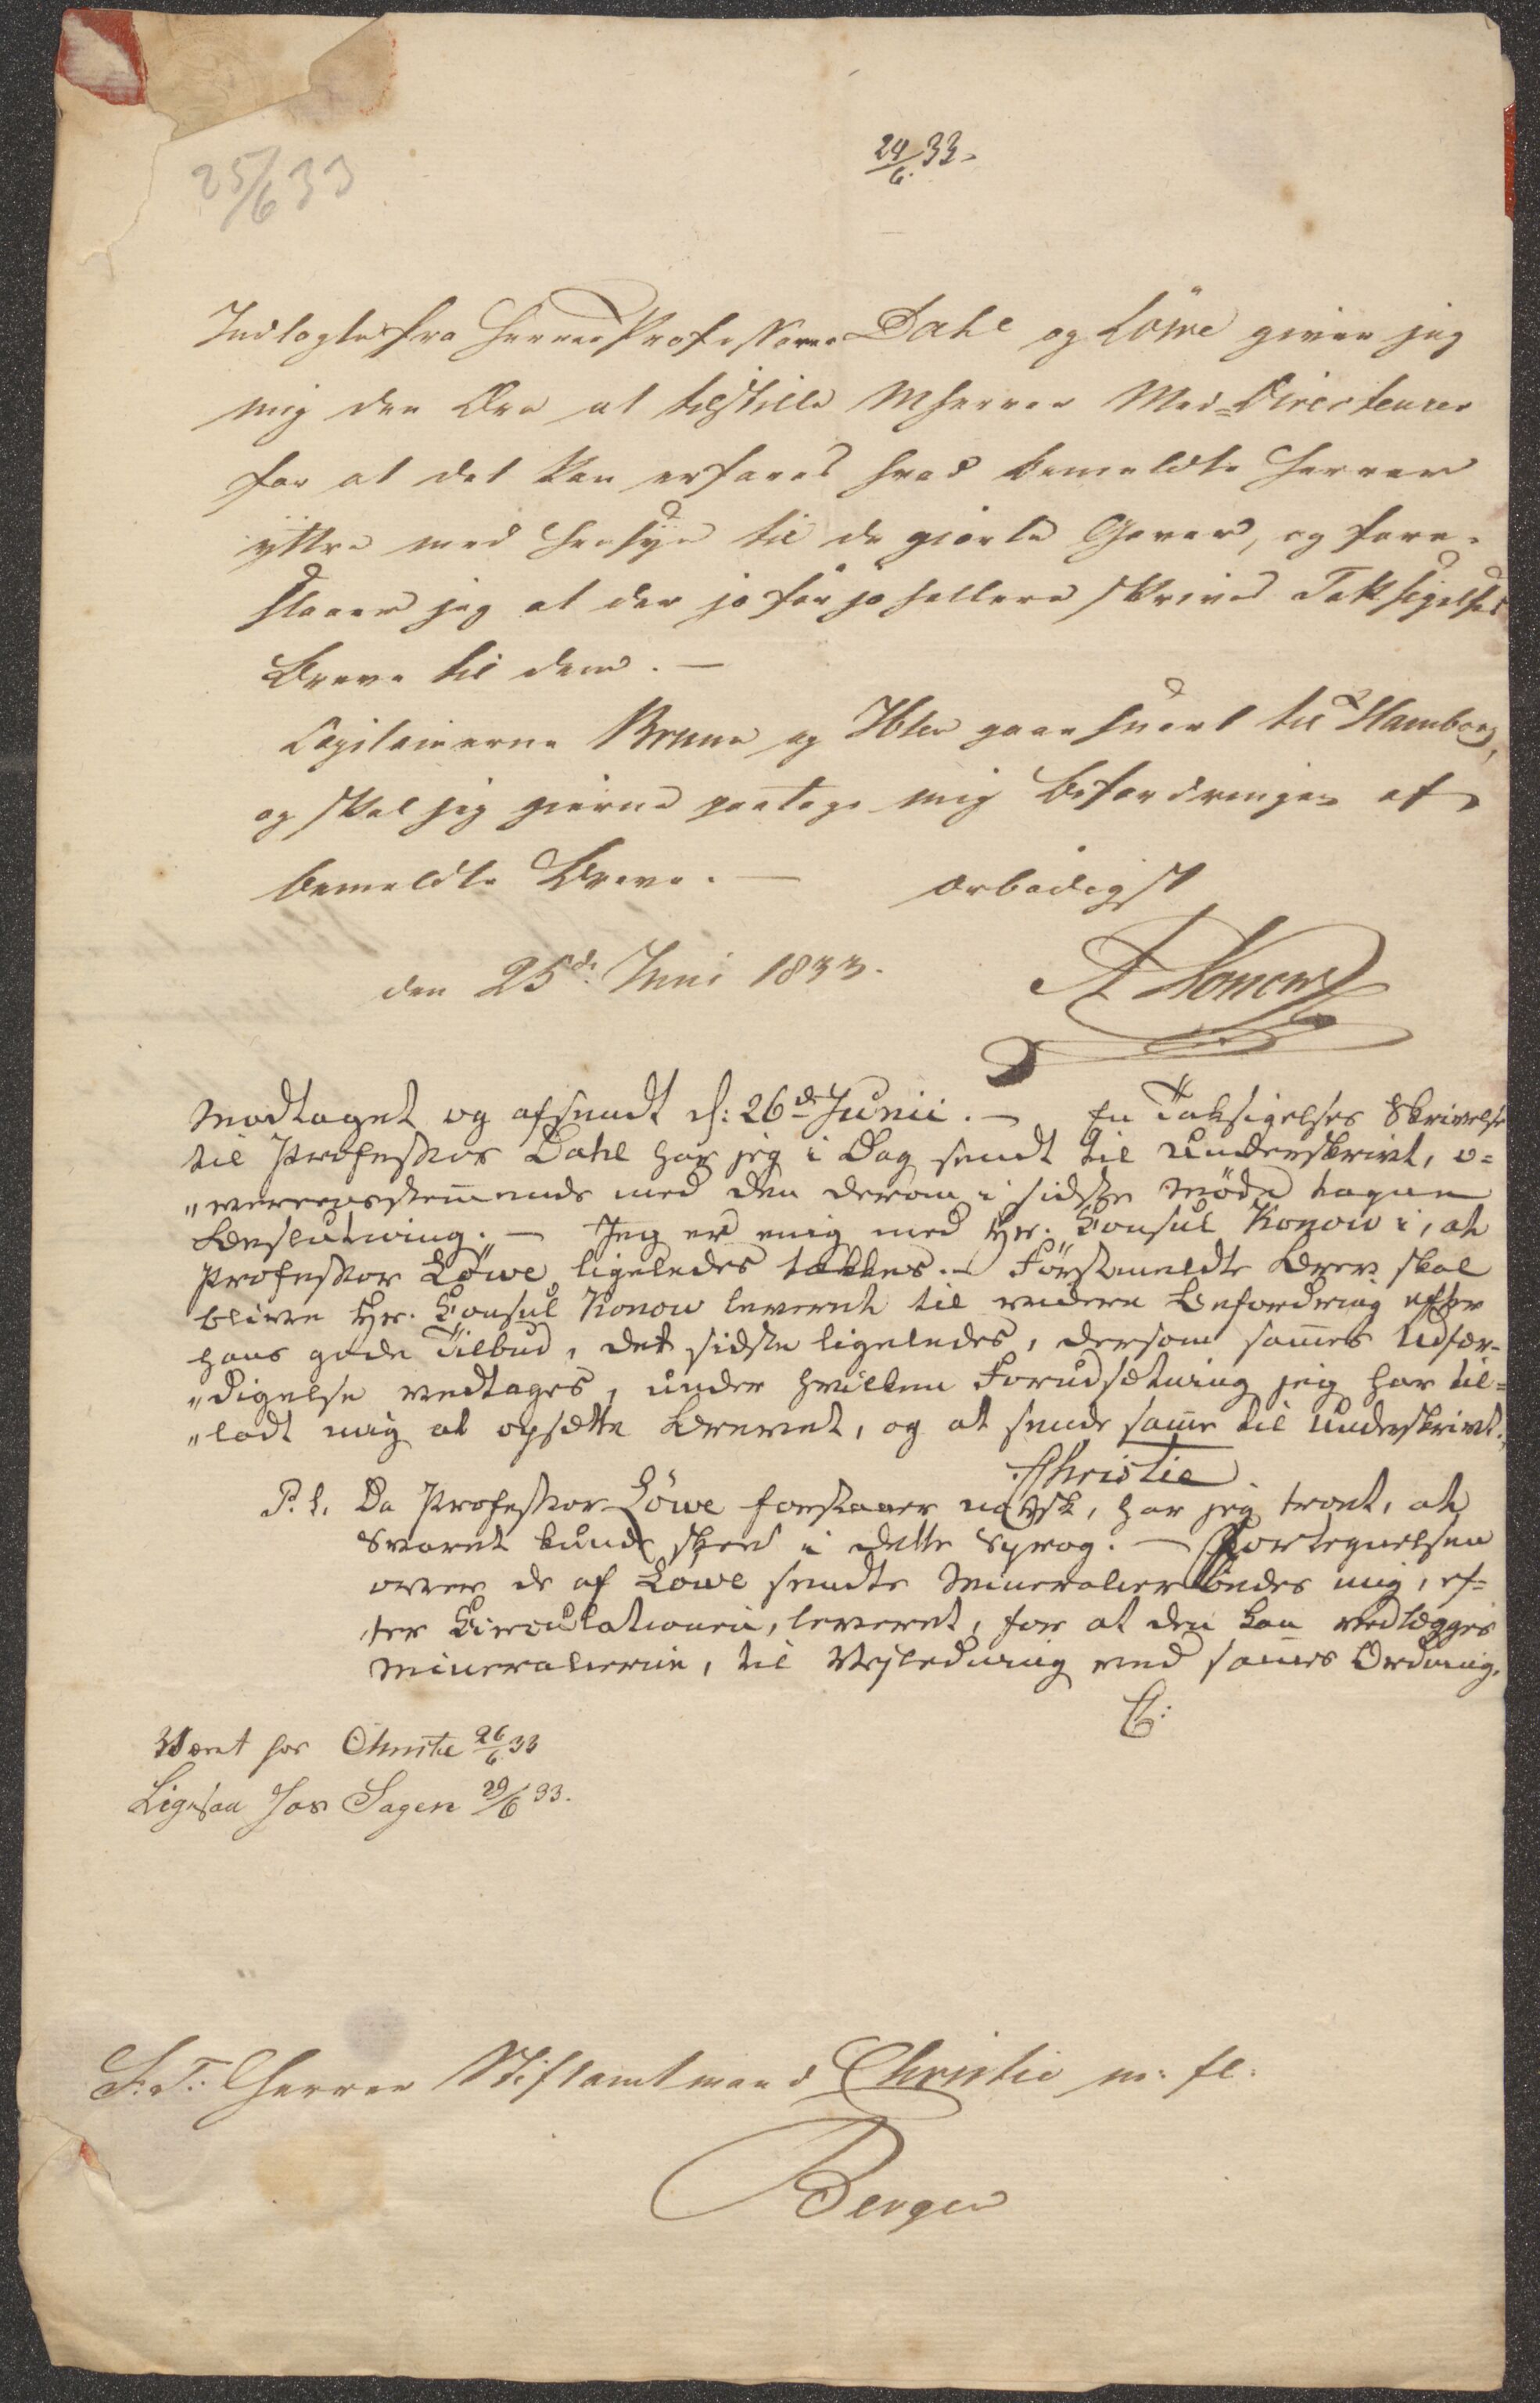 25/6 33
24/6. 33.
Indlagte fra Herrer Professorer Dahl og Löwe giver jeg
mig den Ære at tilstille MHerrer Med-Directeurer
for at det kan erfares hvad bemeldte Herrer
yttre med Hensyn til de giorte Gaver, og fore-
slaaer jeg at der jo før jo hellere skrives Taksigelses
Breve til dem. —
Capitainerne Brunn og Ibsen gaaer snart til Hamborg,
og skal jeg gierne paatage mig Befordringen af
bemeldte Breve. — ærbødigst
den 25de Juni 1833. A Konow
Modtaget og afsendt d: 26de Junii. — En Taksigelses Skrivelse
til Professor Dahl har jeg i Dag sendt til Underskrivt, o=
„vereensstemmende med den derom i sidste Møde tagne
Beslutning. — Jeg er enig med Hr. Consul Konow i, at
Professor Löwe ligeledes takkes. — Förstmeldte Brev skal
blive Hr. Consul Konow leveret til videre Befordring efter
hans gode Tilbud, det sidste ligeledes, dersom sam̄es Udfær-
„digelse vedtages, under hvilken Forudsætning jeg har til=
„ladt mig at opsætte Brevet, og at sende sam̄e til Underskrivt.
Christie
P.S. Da Professor Löwe forstaaer norsk, har jeg troet, at
Svaret kunde skee i dette Sprog. — Fortegnelsen
over de af Löwe sendte Mineralier bedes mig, ef=
ter Circulationen, leveret, for at den kan vedlægges
Mineralierne, til Vejledning ved sam̄es Ordning.
C:
Været hos Christie 26/6 33
Ligesaa hos Sagen 29/6 33.
S. T. Herrer Stiftamtmand Christie m: fl:
Bergen